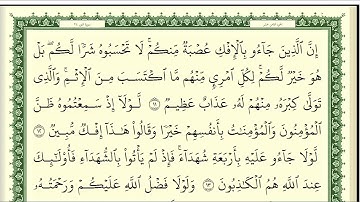 إِنَّ ٱلَّذِينَ جَآءُو بِٱلْإِفْكِ عُصْبَةٌ مِّنكُمْ ۚ لَا تَحْسَبُوهُ شَرًّا لَّكُم ۖ بَلْ
هُوَ خَيْرٌ لَّكُمْ ۚ لِكُلِّ ٱمْرِئٍ مِّنْهُم مَّا ٱكْتَسَبَ مِنَ ٱلْإِثْمِ ۚ وَٱلَّذِى
تَوَلَّىٰ كِبْرَهُۥ مِنْهُمْ لَهُۥ عَذَابٌ عَظِيمٌ ١١ لَّوْلَآ إِذْ سَمِعْتُمُوهُ ظَنَّ
ٱلْمُؤْمِنُونَ وَٱلْمُؤْمِنَٰتُ بِأَنفُسِهِمْ خَيْرًا وَقَالُوا۟ هَٰذَآ إِفْكٌ مُّبِينٌ ١٢
لَّوْلَا جَآءُو عَلَيْهِ بِأَرْبَعَةِ شُهَدَآءَ ۚ فَإِذْ لَمْ يَأْتُوا۟ بِٱلشُّهَدَآءِ فَأُو۟لَٰٓئِكَ
عِندَ ٱللَّهِ هُمُ ٱلْكَٰذِبُونَ ١٣ وَلَوْلَا فَضْلُ ٱللَّهِ عَلَيْكُمْ وَرَحْمَتُهُۥ